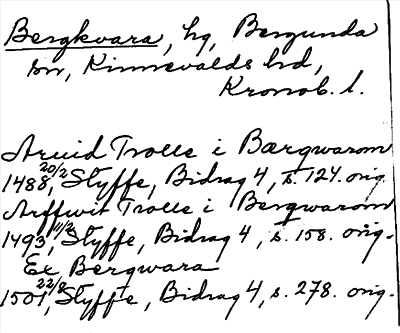 Bergkvara, hg, Bergunda
sn, Kinnevalds hd,
Kronob. l.
Arvid Trolle i Bærgwarom
1488 20/2, Styffe, Bidrag 4, s. 124. orig.
Arffwit Trolle i Bergwarom
1493 11/2, Styffe, Bidrag 4, s. 158. orig.
Ee, Bergwara
1501 22/8, Styffe, Bidrag 4, s. 278. orig.